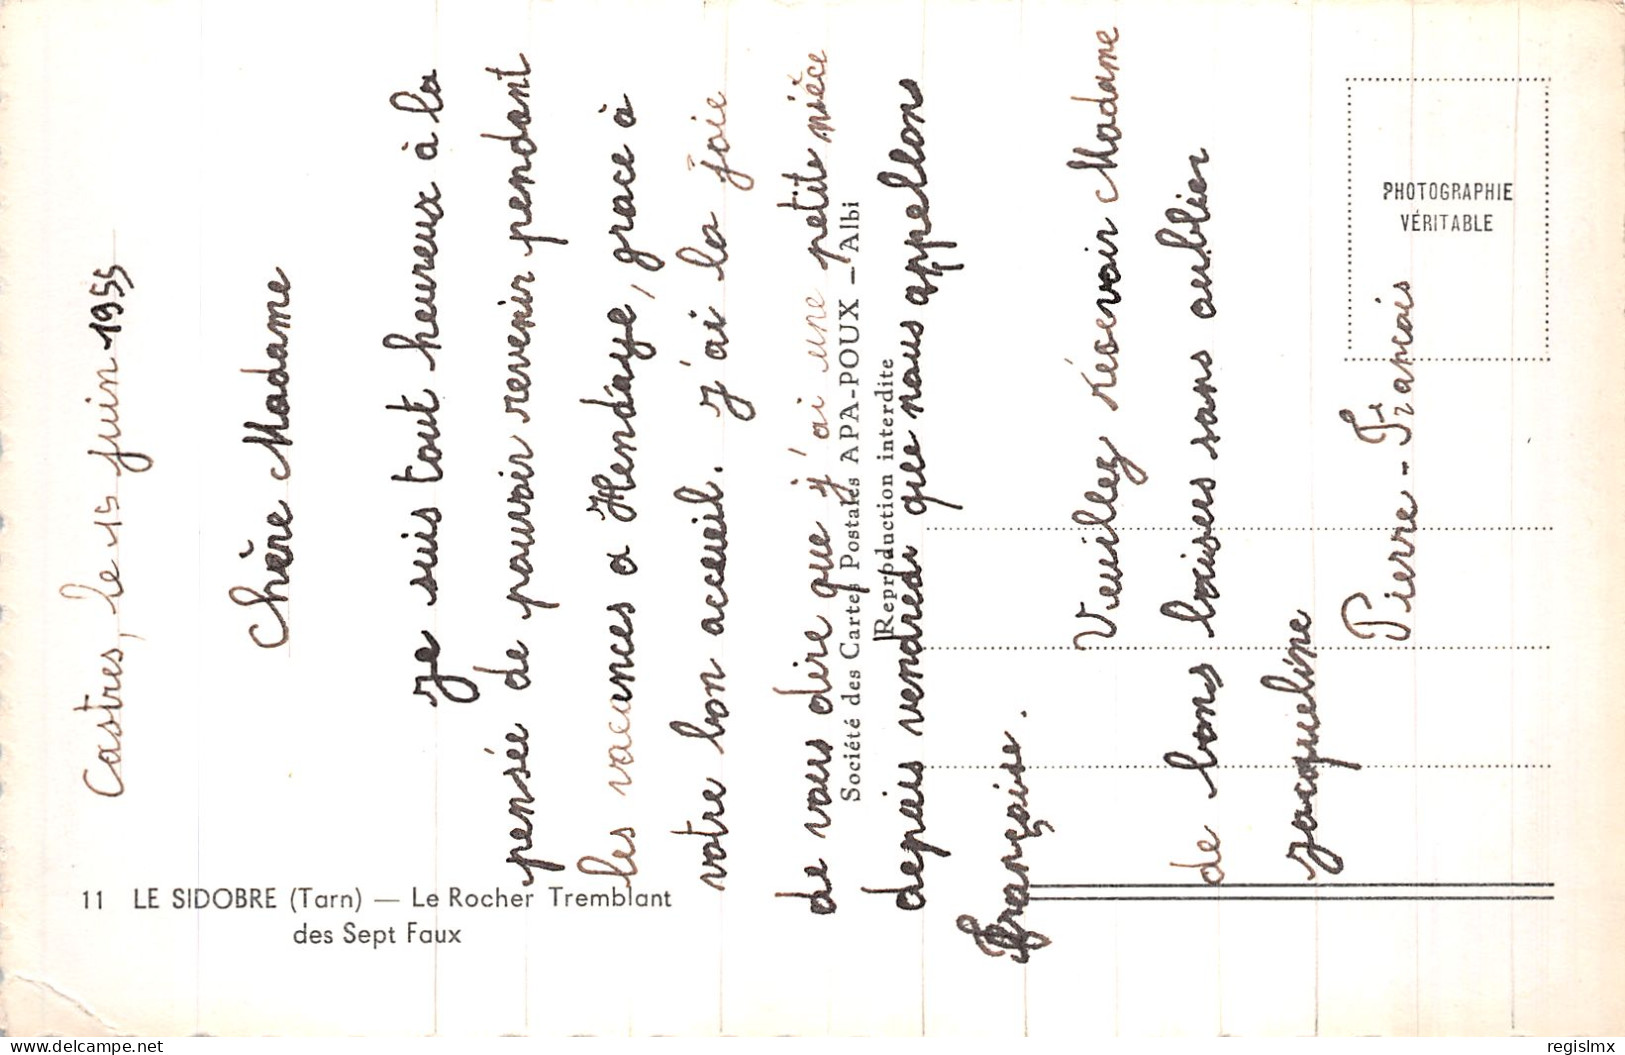 Castres, le 15 juin 1955
Chère Madame
Je suis tout heureux à la
pensée de pouvoir revenir pendant
les vacances a Hendaye, grace à
votre bon accueil. J'ai la joie
de vous dire que j'ai une petite nièce
depuis vendredi que nous appelons
Françoise.
Veuillez récevoir Madame
de bons baisers sans oublier
Jacqueline
Pierre - Francais
11 LE SIDOBRE (Tarn) — Le Rocher Tremblant
des Sept Faux
Société des Cartes Postales APA-POUX – Albi
Reproduction interdite
PHOTOGRAPHIE
VÉRITABLE
www.delcampe.net
regislmx